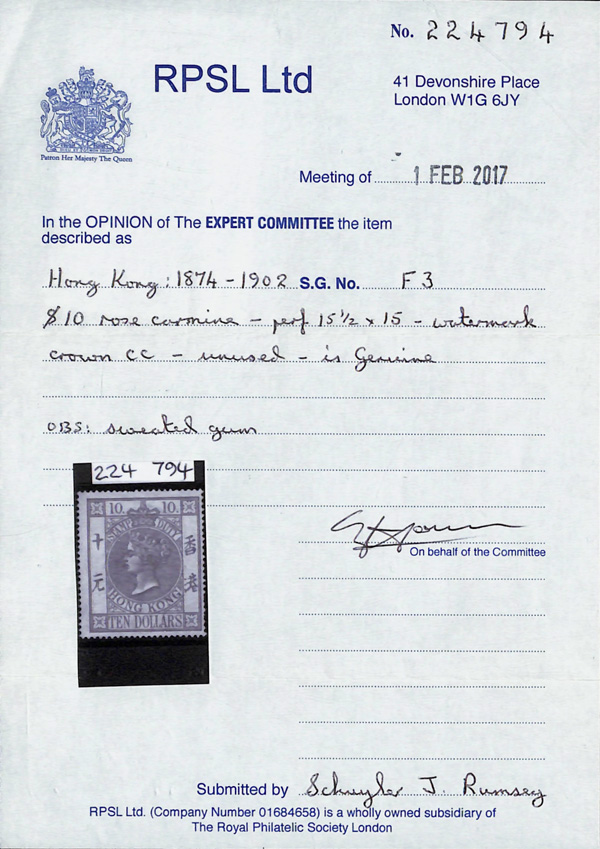 No. 224794
RPSL Ltd
41 Devonshire Place
London W1G 6JY
Patron Her Majesty The Queen
Meeting of 1 FEB 2017
In the OPINION of The EXPERT COMMITTEE the item
described as
Hong Kong: 1874-1902 S.G. No. F3
$10 rose carmine - perf 15½ x 15 - watermark
crown CC - unused - is Genuine
OBS: sweated gum
224 794
10. 10.
STAMP DUTY
十元
香港
HONG KONG
TEN DOLLARS
On behalf of the Committee
Submitted by Schuyler J. Rumsey
RPSL Ltd. (Company Number 01684658) is a wholly owned subsidiary of
The Royal Philatelic Society London